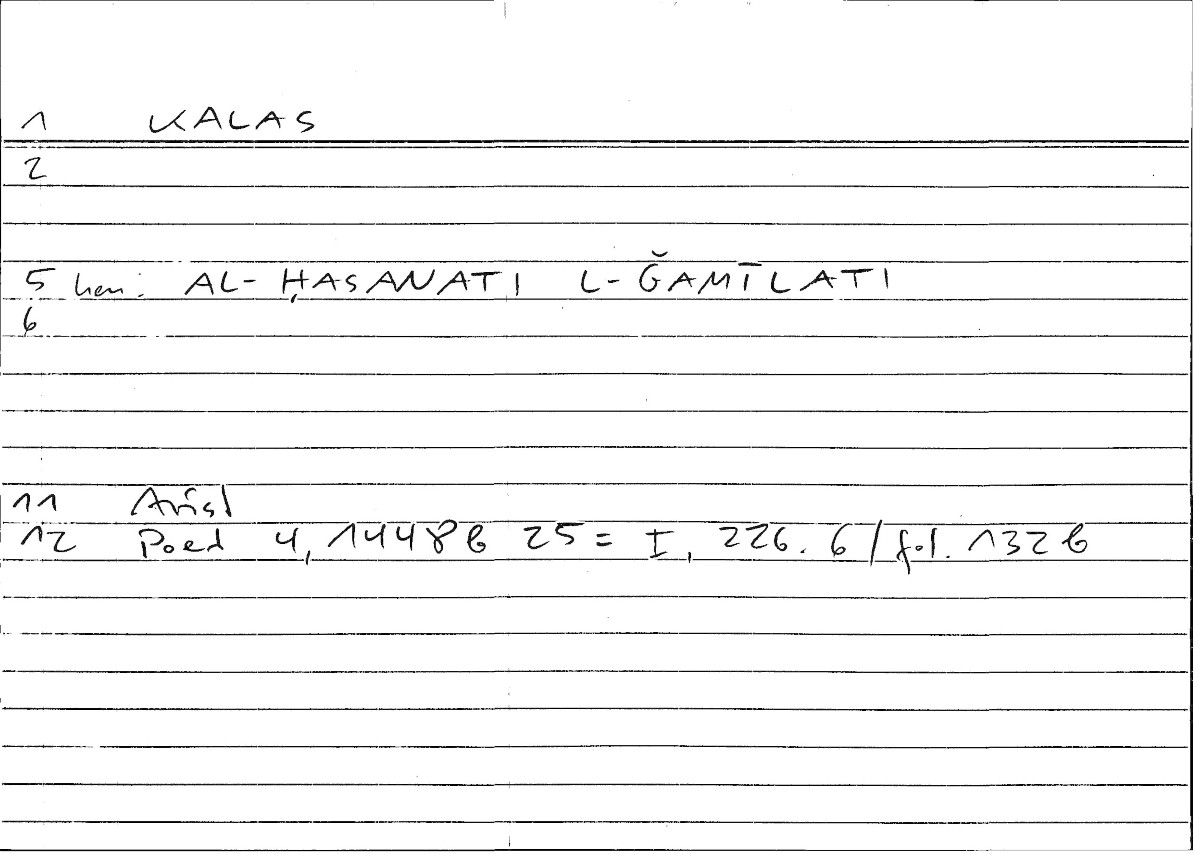 1 KALAS
2
5 hen. AL-ḤASANATI L-ǦAMĪLATI
6
11 Arist
12 Poet 4, 1448b 25 = I, 226.6/fol. 132b